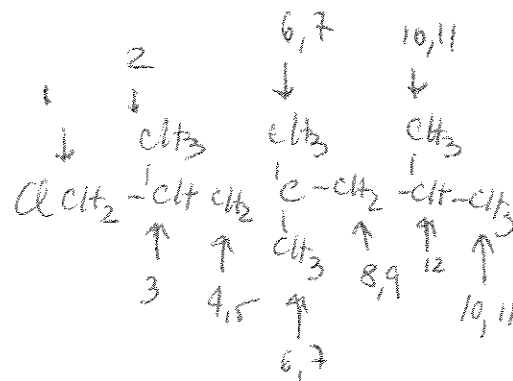 6,7 10,11
1 2
CH3 CH3 CH3
ClCH2 - CH CH2 C - CH2 - CH - CH3
CH3
3 4,5 8,9 12 10,11
6,7